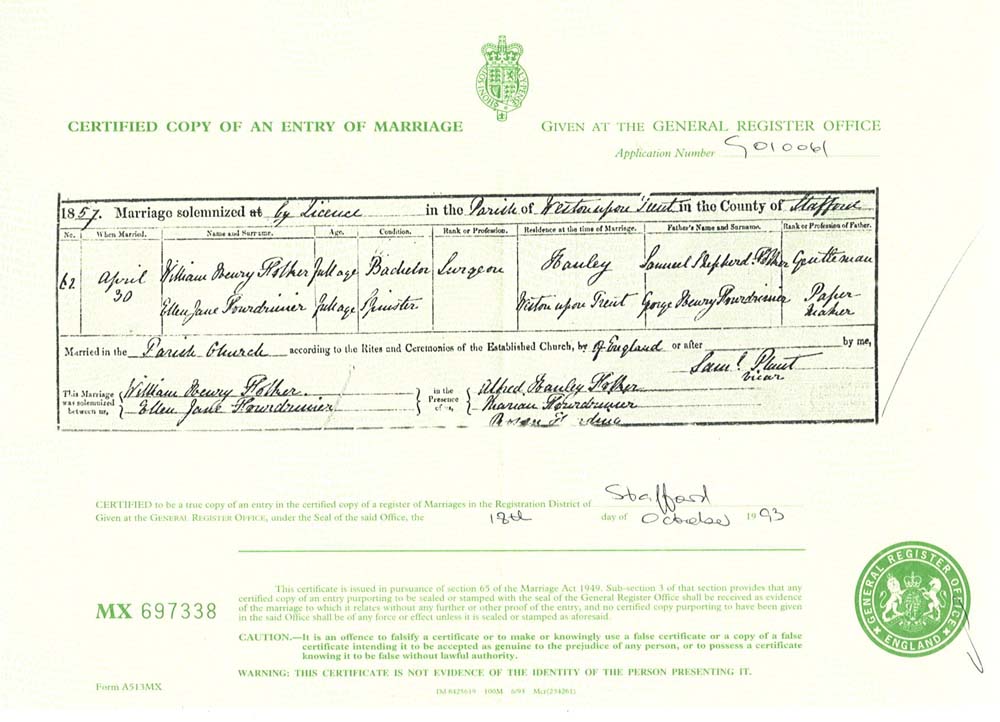 HONI SOIT QUI MAL Y PENSE
CERTIFIED COPY OF AN ENTRY OF MARRIAGE
GIVEN AT THE GENERAL REGISTER OFFICE
Application Number G010061
1857. Marriage solemnized at by Licence in the Parish of Weston upon Trent in the County of Stafford
No. When Married. Name and Surname. Age. Condition. Rank or Profession. Residence at the time of Marriage. Father's Name and Surname. Rank or Profession of Father.
62 April 30 William Henry Full age Bachelor Surgeon Hanley Samuel Shepherd Gentleman
Ellen Jane Fourdrinier Full age Spinster Weston upon Trent George Henry Fourdrinier Paper Maker
Married in the Parish Church according to the Rites and Ceremonies of the Established Church, by of England or after by me,
Saml. Plant
Vicar
This Marriage was solemnized between us,
William Henry
Ellen Jane Fourdrinier
in the Presence of us,
Alfred Hanley
Marian Fourdrinier
CERTIFIED to be a true copy of an entry in the certified copy of a register of Marriages in the Registration District of Stafford
Given at the GENERAL REGISTER OFFICE, under the Seal of the said Office, the 18th day of October 1993
MX 697338
This certificate is issued in pursuance of section 65 of the Marriage Act 1949. Sub-section 3 of that section provides that any
certified copy of an entry purporting to be sealed or stamped with the seal of the General Register Office shall be received as evidence
of the marriage to which it relates without any further or other proof of the entry, and no certified copy purporting to have been given
in the said Office shall be of any force or effect unless it is sealed or stamped as aforesaid.
CAUTION.—It is an offence to falsify a certificate or to make or knowingly use a false certificate or a copy of a false
certificate intending it to be accepted as genuine to the prejudice of any person, or to possess a certificate
knowing it to be false without lawful authority.
WARNING: THIS CERTIFICATE IS NOT EVIDENCE OF THE IDENTITY OF THE PERSON PRESENTING IT.
GENERAL REGISTER OFFICE
ENGLAND
Form A513MX
100M 6/93 Mcr(234261)